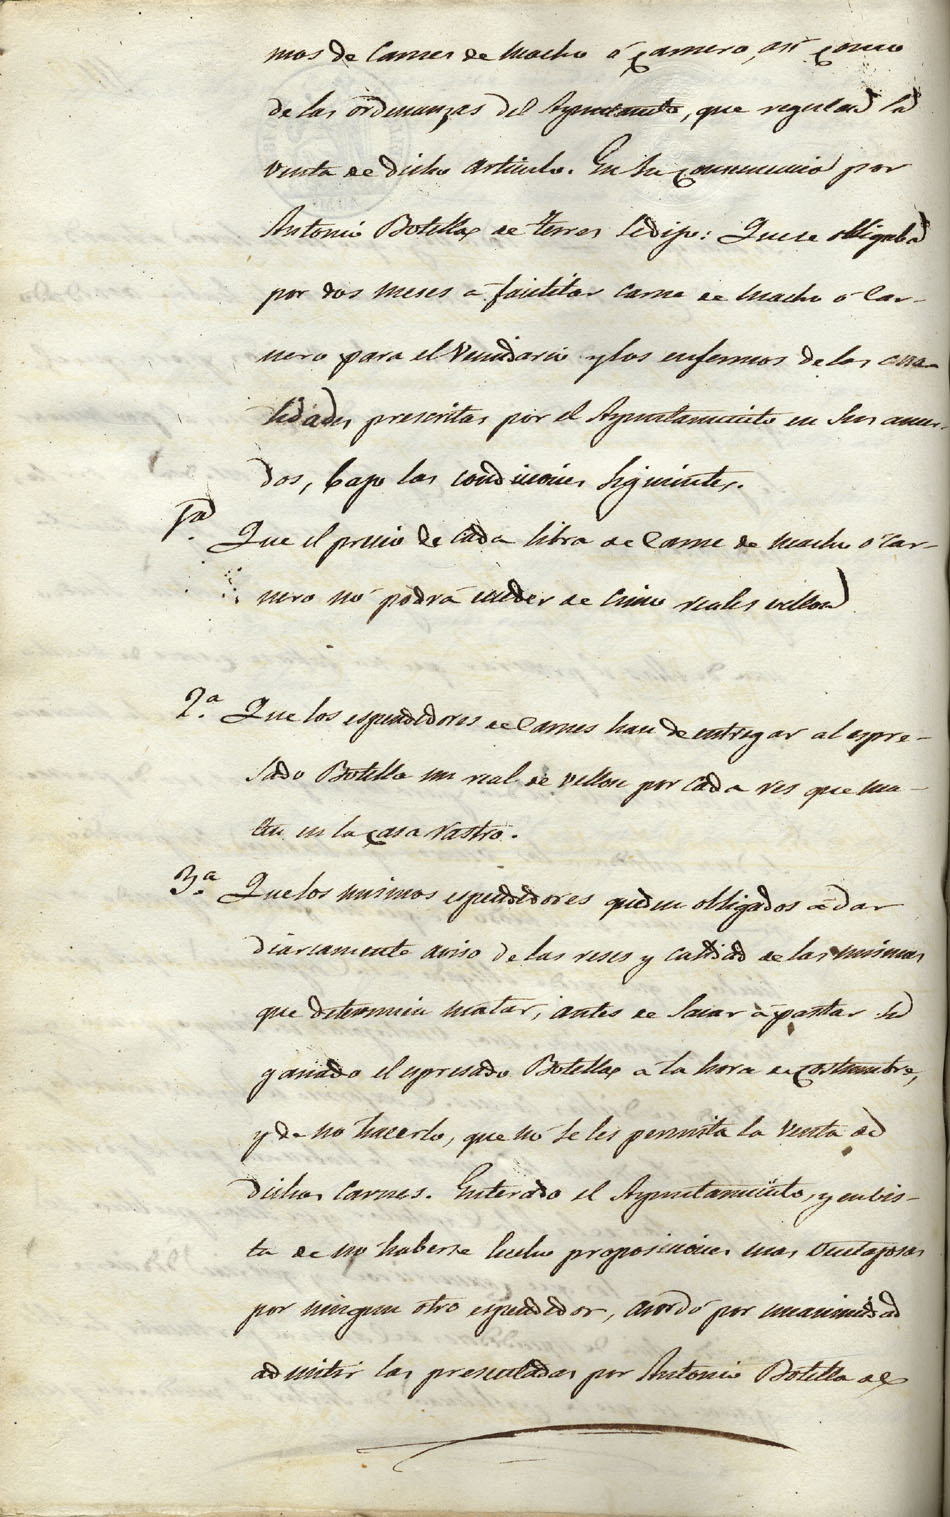 mos de Carnes de Macho ó Carnero, así como
de las ordenanzas del Ayuntamto, que regulan la
venta de dicho artículo. En su consecuencia por
Antonio Botella de Ferrer se dijo: Que se obligaba
por dos meses á facilitar carne de Macho ó Car-
nero para el Vecindario y los enfermos de las cua-
lidades prescritas por el Ayuntamiento en sus acuer-
dos, bajo las condiciones siguientes.
1ª. Que el precio de cada libra de Carne de macho ó Car-
nero no podrá eceder de cinco reales vellon
2ª. Que los espendedores de Carnes han de entregar al espre-
sado Botella un real de vellon por cada res que ma-
ten en la casa rastro.
3ª. Que los mismos espendedores queden obligados á dar
diariamente aviso de las reses y calidad de las mismas
que determinen matar, antes de sacar á pastar su
ganado el espresado Botella á la hora de costumbre,
y de no hacerlo, que no se les permita la venta de
dichas Carnes. Enterado el Ayuntamiento, y en vis-
ta de no haberse hecho proposiciones mas ventajosas
por ningun otro espendedor, acordó por unanimidad
admitir las presentadas por Antonio Botella de